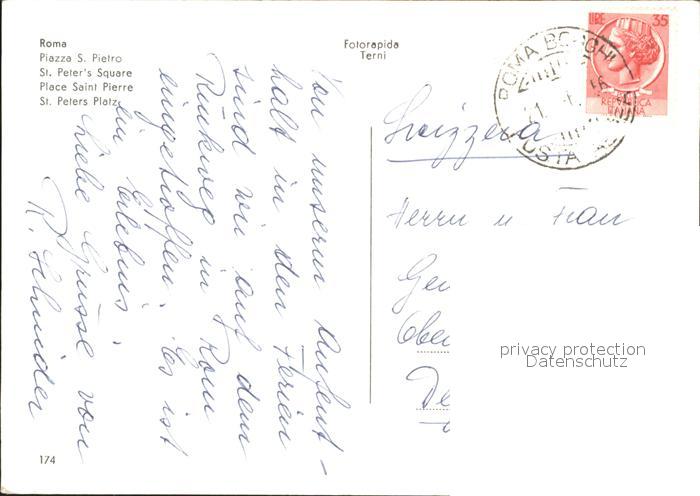 Roma
Piazza S. Pietro
St. Peter's Square
Place Saint Pierre
St. Peters Platz
Fotorapida
Terni
LIRE 35
ROMA BORGHI
REPVBBLICA
ITALIANA
POSTA
Von unserm Aufent-
halt in den Ferien
sind wir auf dem
Rückweg in Rom
eingetroffen. Es ist
ein Erlebnis.
Liebe Grüsse von
R. Schnider
Svizzera
Herrn u Frau
Ge
Obe
De
privacy protection
Datenschutz
174